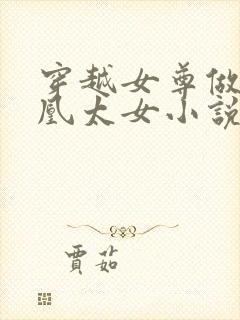 穿越女尊做
凰太女小說
賈茹